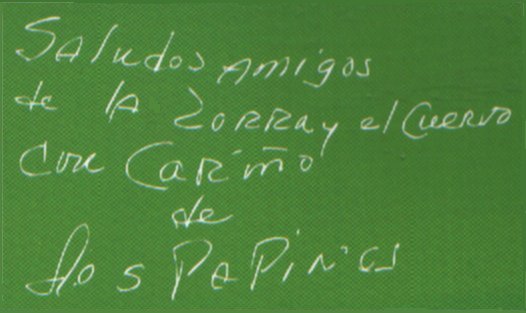 Saludos Amigos
de la Zorra y el Cuervo
con Cariño
de
Los Papines